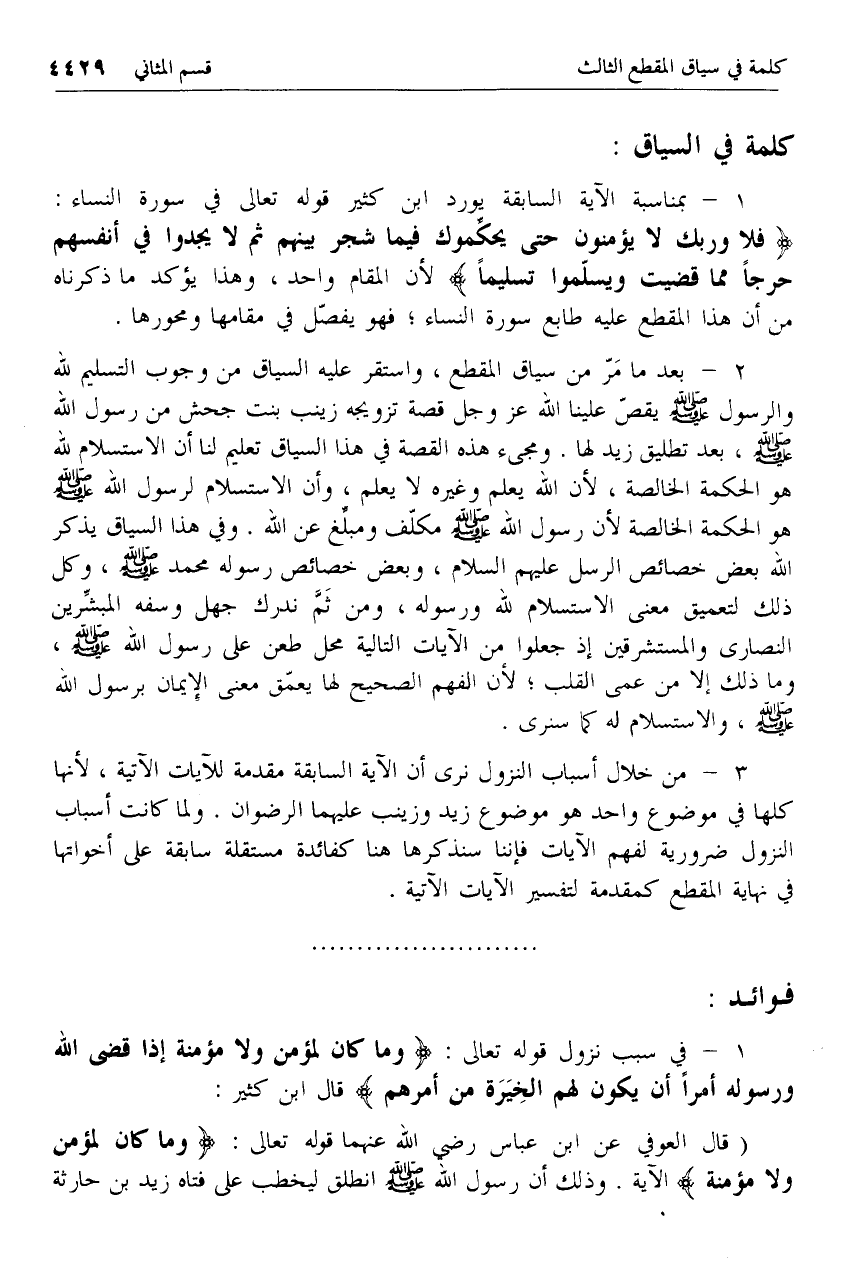 كلمة في سياق المقطع الثالث قسم المثاني ٤٤٢٩
كلمة في السياق :
١ - بمناسبة الآية السابقة يورد ابن كثير قوله تعالى في سورة النساء :
﴿ فلا وربك لا يؤمنون حتى يحكِّموك فيما شجر بينهم ثم لا يجدوا في أنفسهم
حرجاً مما قضيت ويسلّموا تسليماً ﴾ لأن المقام واحد ، وهذا يؤكد ما ذكرناه
من أن هذا المقطع عليه طابع سورة النساء ؛ فهو يفصّل في مقامها ومحورها .
٢ - بعد ما مَرّ من سياق المقطع ، واستقر عليه السياق من وجوب التسليم لله
والرسول ﷺ يقصّ علينا الله عز وجل قصة تزويجه زينب بنت جحش من رسول الله
ﷺ ، بعد تطليق زيد لها . ومجيء هذه القصة في هذا السياق تعليم لنا أن الاستسلام لله
هو الحكمة الخالصة ، لأن الله يعلم وغيره لا يعلم ، وأن الاستسلام لرسول الله ﷺ
هو الحكمة الخالصة لأن رسول الله ﷺ مكلّف ومبلِّغ عن الله . وفي هذا السياق يذكر
الله بعض خصائص الرسل عليهم السلام ، وبعض خصائص رسوله محمد ﷺ ، وكل
ذلك لتعميق معنى الاستسلام لله ورسوله ، ومن ثَمَّ ندرك جهل وسفه المبشِّرين
النصارى والمستشرقين إذ جعلوا من الآيات التالية محل طعن على رسول الله ﷺ ،
وما ذلك إلا من عمى القلب ؛ لأن الفهم الصحيح لها يعمّق معنى الإيمان برسول الله
ﷺ ، والاستسلام له كما سنرى .
٣ - من خلال أسباب النزول نرى أن الآية السابقة مقدمة للآيات الآتية ، لأنها
كلها في موضوع واحد هو موضوع زيد وزينب عليهما الرضوان . ولما كانت أسباب
النزول ضرورية لفهم الآيات فإننا سنذكرها هنا كفائدة مستقلة سابقة على أخواتها
في نهاية المقطع كمقدمة لتفسير الآيات الآتية .
.........................
فوائد :
١ - في سبب نزول قوله تعالى : ﴿ وما كان لمؤمن ولا مؤمنة إذا قضى الله
ورسوله أمراً أن يكون لهم الخِيَرَة من أمرهم ﴾ قال ابن كثير :
( قال العوفي عن ابن عباس رضي الله عنهما قوله تعالى : ﴿ وما كان لمؤمن
ولا مؤمنة ﴾ الآية . وذلك أن رسول الله ﷺ انطلق ليخطب على فتاه زيد بن حارثة